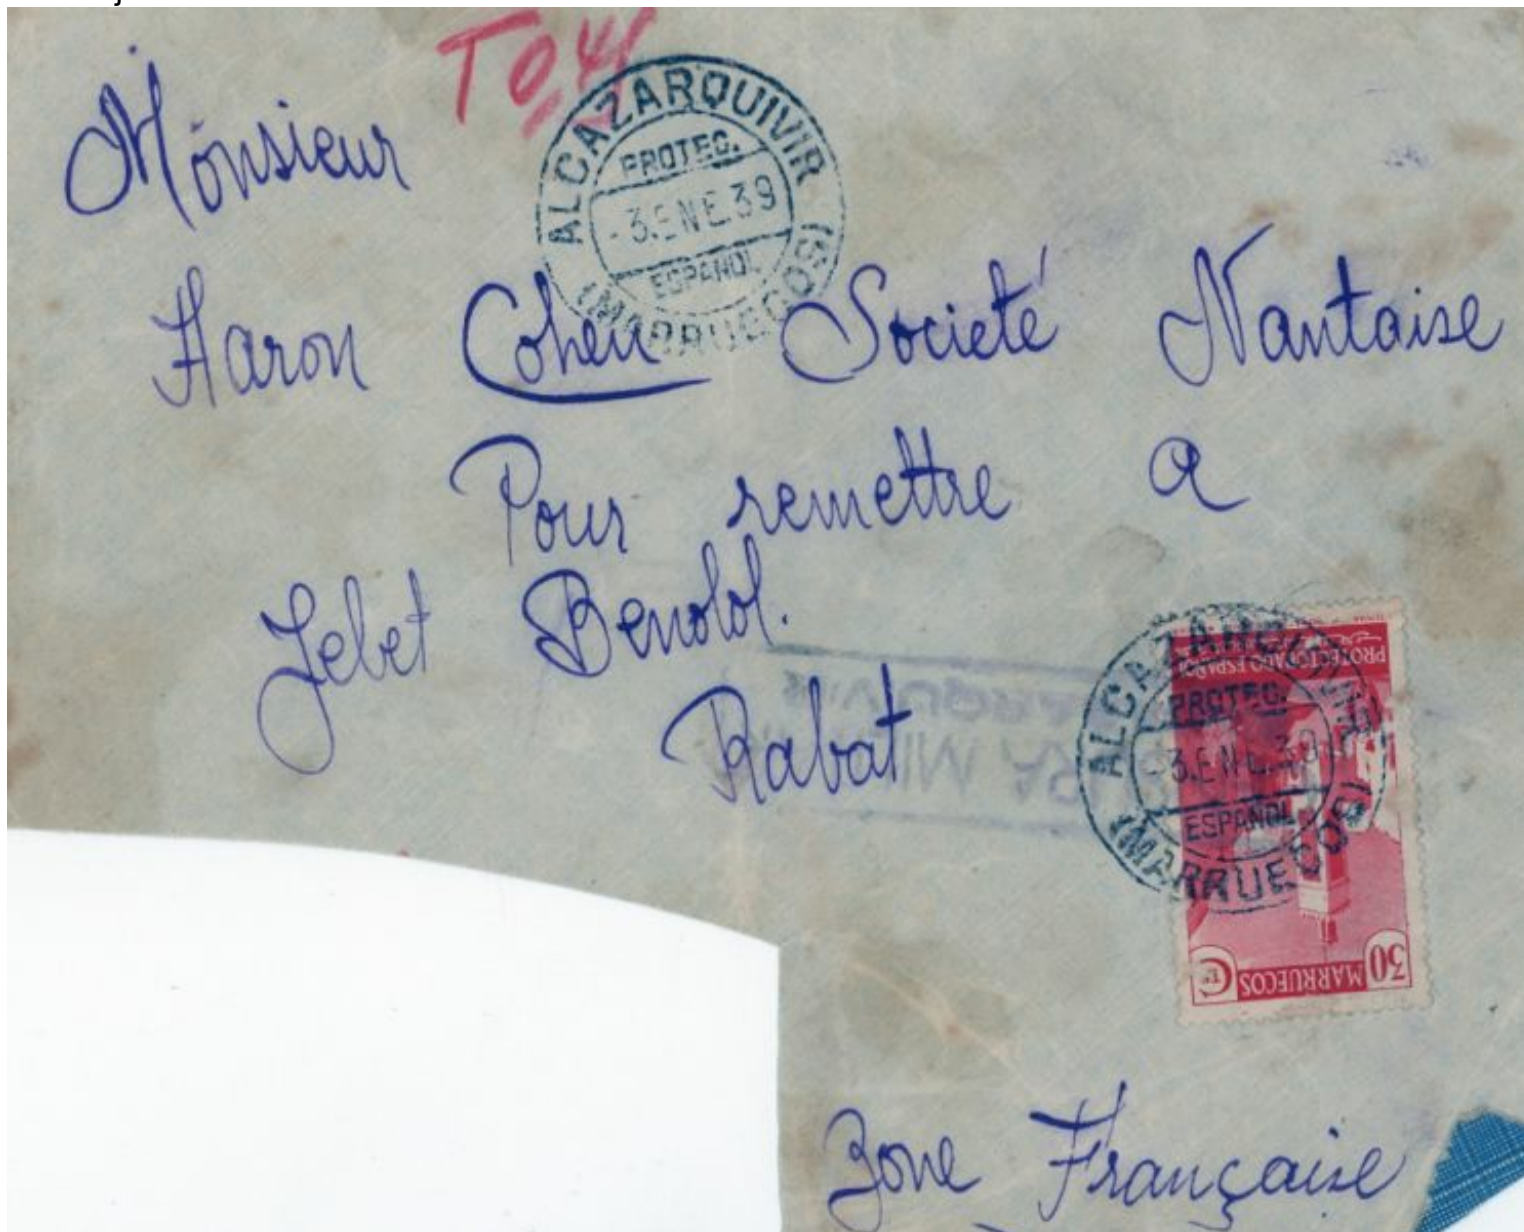 T 0.4
Monsieur
ALCAZARQUIVIR
PROTEC.
-3.ENE.39
ESPAÑOL
(MARRUECOS)
Haron Cohen Societé Nantaise
Pour remettre a
Jebet Benolol.
Rabat
ALCAZARQUIVIR
PROTEC.
-3.ENE.39
ESPAÑOL
(MARRUECOS)
PROTECTORADO ESPAÑOL
MARRUECOS
30 Cts
Zone Française